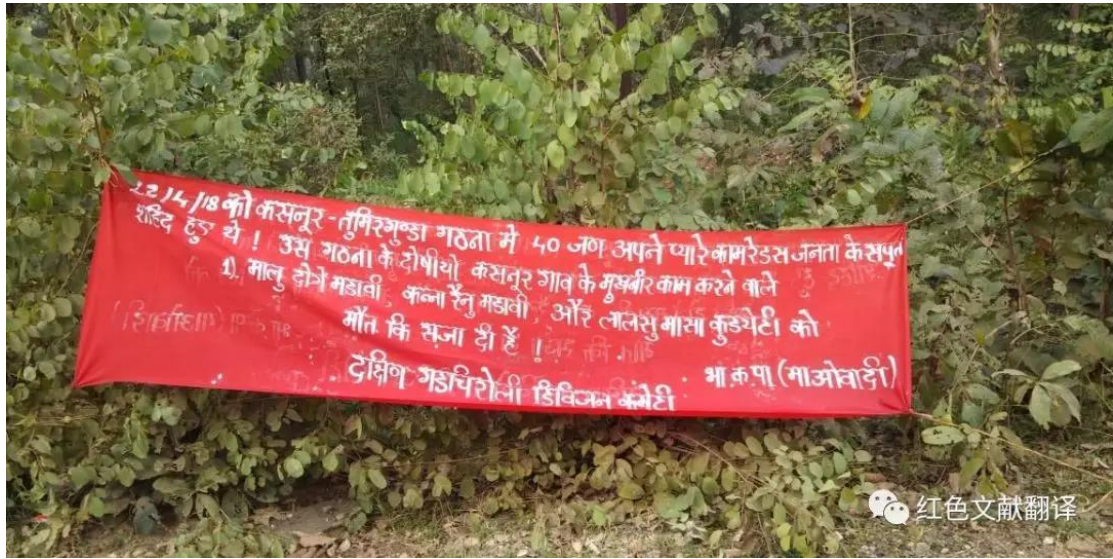 22/4/18 को कसनूर-तुमिरगुण्डा गठना मे 40 जण अपने प्यारे कामरेडस जनता के सपूत
शहिद हुए थे ! उस गठना के दोषीयो कसनूर गाव के मुखबीर काम करने वाले
1). मालु दोगे मडावी, कन्ना रैनु मडावी, और लालसु मासा कुडयेटी को
मौत कि सजा दी है !
दक्षिण गडचिरोली डिविजन कमेटी
भा.क.पा (माओवादी)
红色文献翻译